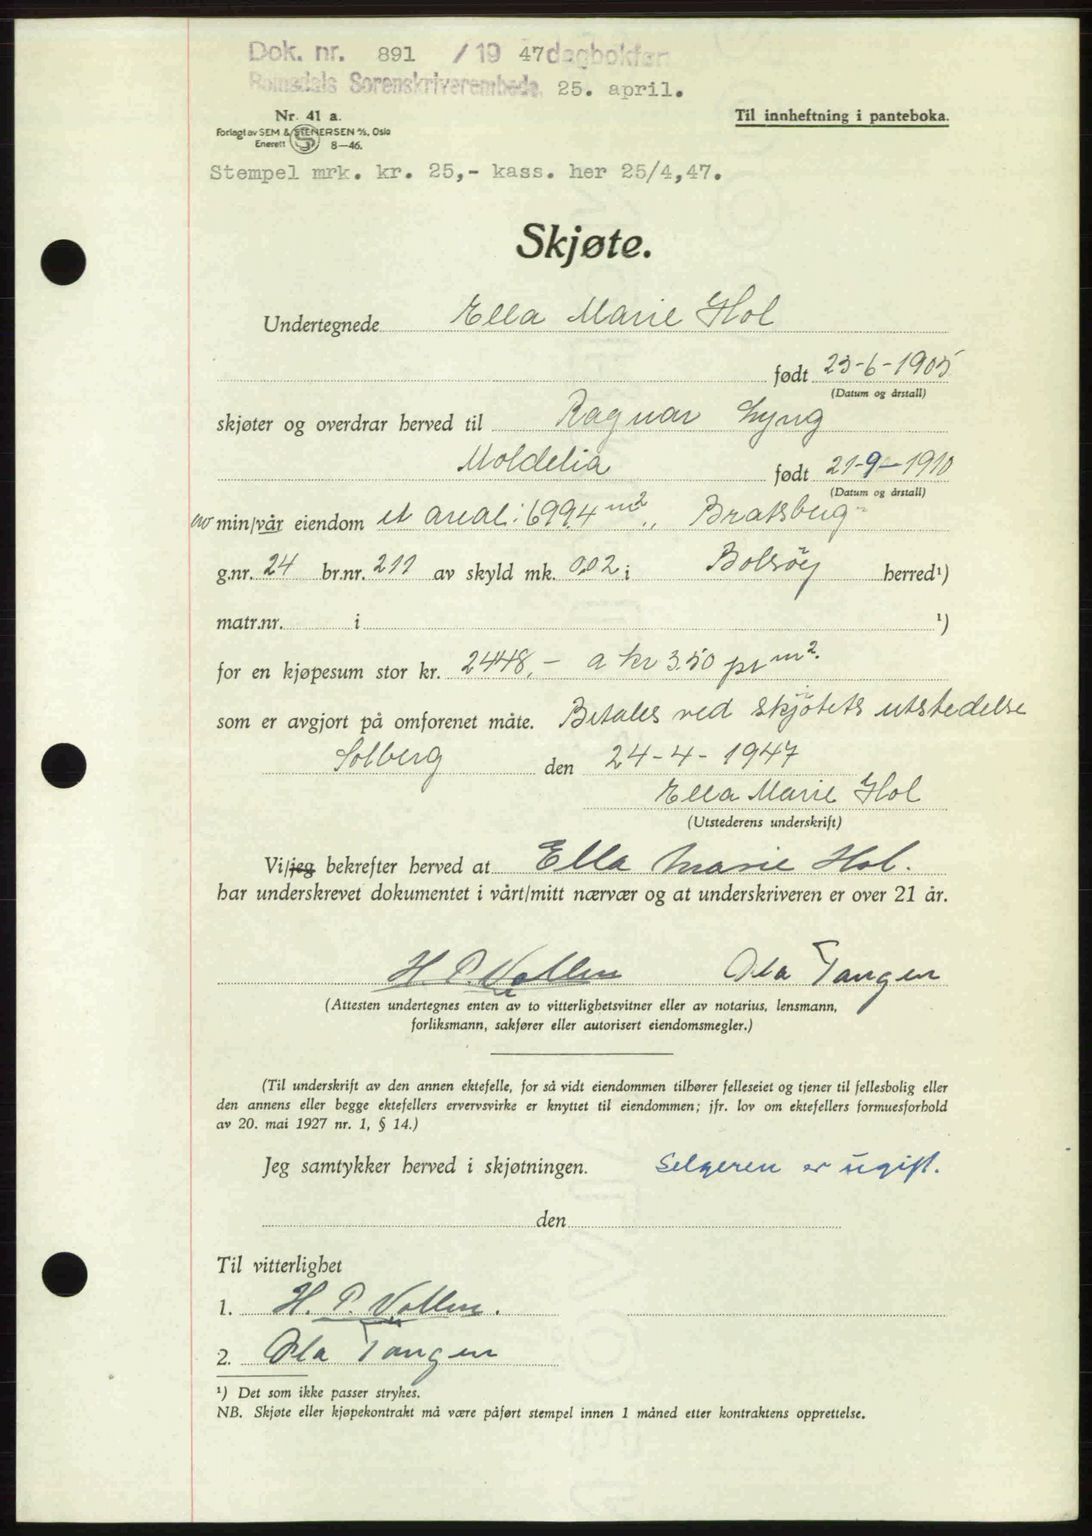 Dok. nr. 891 / 19 47 dagbokfør
Romsdals Sorenskriverembede, 25. april.
Nr. 41 a.
Til innheftning i panteboka.
Forlagt av SEM & STENERSEN A/S, Oslo
Enerett 8—46.
Stempel mrk. kr. 25,- kass. her 25/4,47.
Skjøte.
Undertegnede Ella Marie Hol
født 23-6-1905
(Datum og årstall)
skjøter og overdrar herved til Ragnar Lyng
Moldelia født 21-9-1910
(Datum og årstall)
av min/vår eiendom et areal: 699.4 m2 „ Bratsberg"
g.nr. 24 br.nr. 211 av skyld mk. 0,02 i Bolsøy herred¹)
matr.nr. i ¹)
for en kjøpesum stor kr. 2448,- a kr 3.50 pr m2.
som er avgjort på omforenet måte. Betales ved skjøtets utstedelse
Solberg den 24-4-1947
Ella Marie Hol
(Utstederens underskrift)
Vi/jeg bekrefter herved at Ella Marie Hol.
har underskrevet dokumentet i vårt/mitt nærvær og at underskriveren er over 21 år.
H. P. Vollen Ola Tangen
(Attesten undertegnes enten av to vitterlighetsvitner eller av notarius, lensmann,
forliksmann, sakfører eller autorisert eiendomsmegler.)
(Til underskrift av den annen ektefelle, for så vidt eiendommen tilhører felleseiet og tjener til fellesbolig eller
den annens eller begge ektefellers ervervsvirke er knyttet til eiendommen; jfr. lov om ektefellers formuesforhold
av 20. mai 1927 nr. 1, § 14.)
Jeg samtykker herved i skjøtningen. Selgeren er ugift.
den
Til vitterlighet
1. H. P. Vollen.
2. Ola Tangen
¹) Det som ikke passer strykes.
NB. Skjøte eller kjøpekontrakt må være påført stempel innen 1 måned etter kontraktens opprettelse.